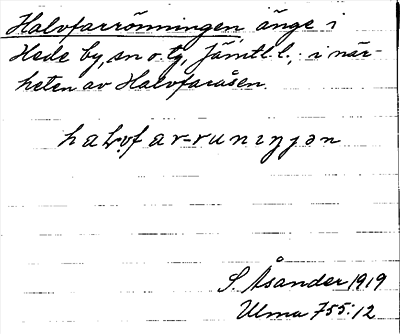 Halvfarrönningen änge i
Hede by, sn o. tg, Jämtl. l.; i när-
heten av Halvfaråsen.
halvfar-runiŋjən
S. Åsander 1919
Ulma 755:12